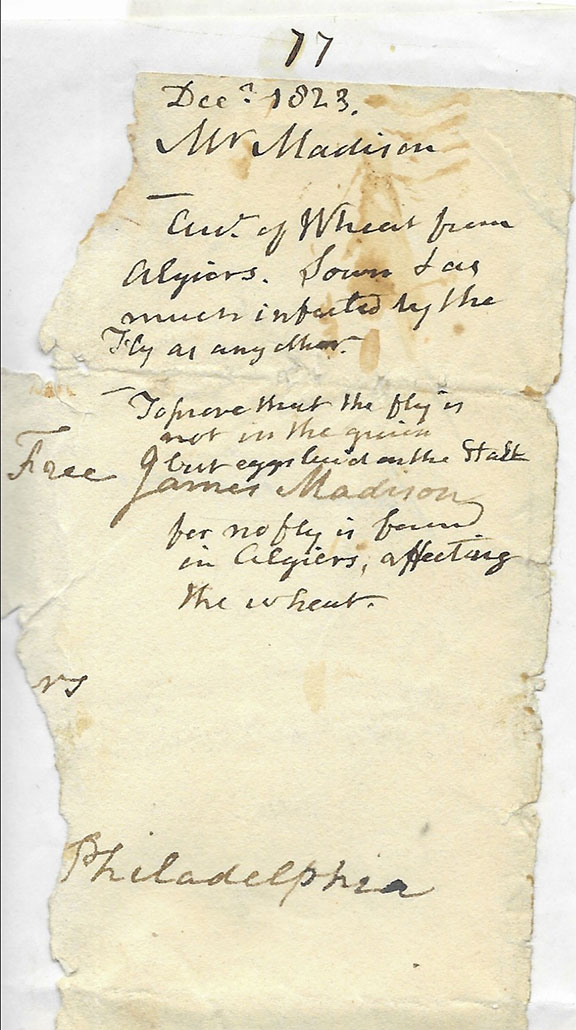 77
Decr. 1823.
Mr Madison
Acct. of Wheat from
Algiers. Sown & as
much infected by the
Fly as any other.
To prove that the fly is
not in the grain
Free
but eggs laid on the Stalk
James Madison
for no fly is found
in Algiers, affecting
the wheat.
rs
Philadelphia